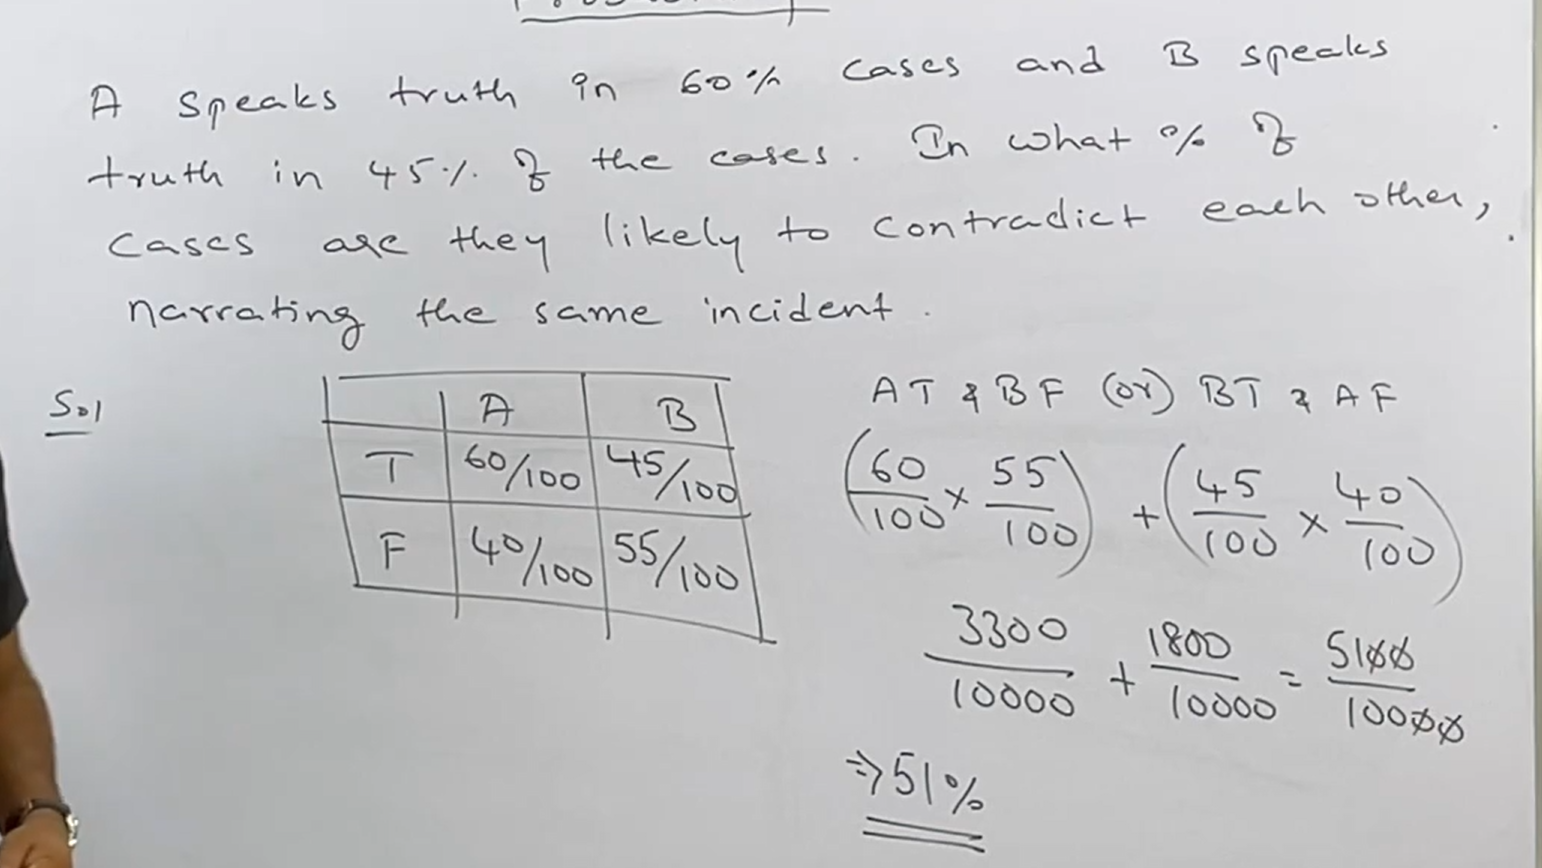 A speaks truth in 60% cases and B speaks
truth in 45% of the cases. In what % of
cases are they likely to contradict each other,
narrating the same incident.
Sol
A B
T 60/100 45/100
F 40/100 55/100
AT & BF (or) BT & AF
(60/100 × 55/100) + (45/100 × 40/100)
3300/10000 + 1800/10000 = 5100/10000
⇒ 51%